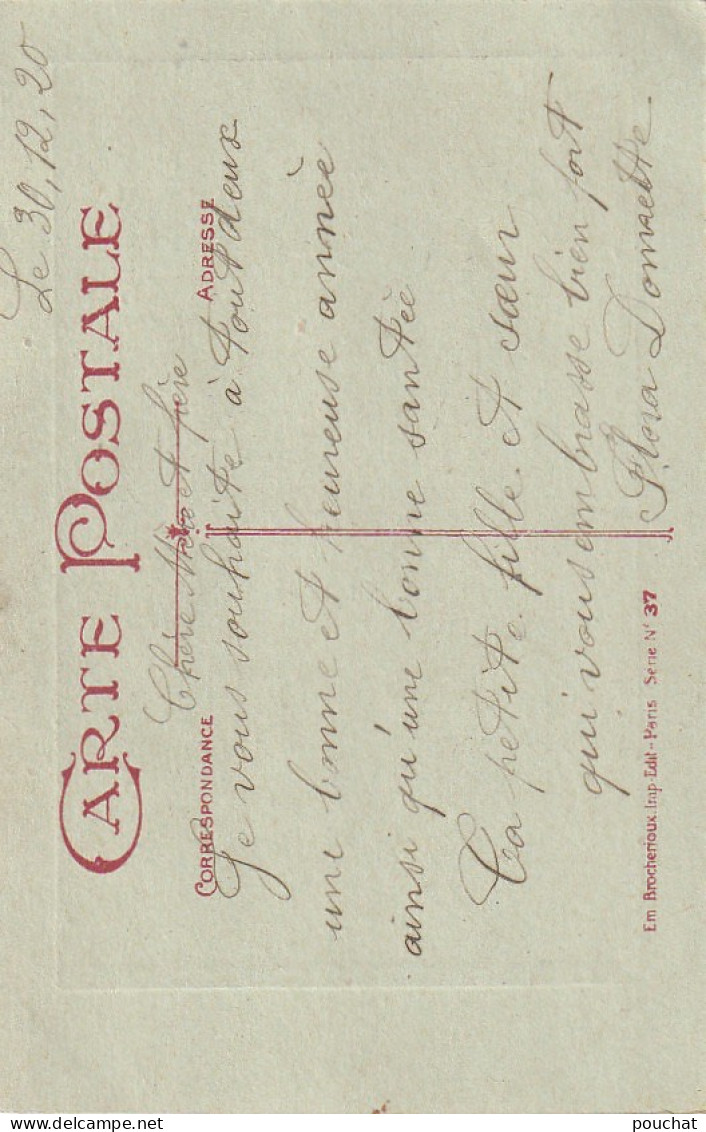 Le 30, 12, 20
CARTE POSTALE
Chère Mère et frère
CORRESPONDANCE
ADRESSE
Je vous souhaite à tout deux
une bonne et heureuse année
ainsi qu'une bonne santée
Ta petite fille et sœur
qui vous embrasse bien fort
Flora
Em Brocherioux. Imp-Edit-Paris Serie N° 37
www.delcampe.net
pouchat